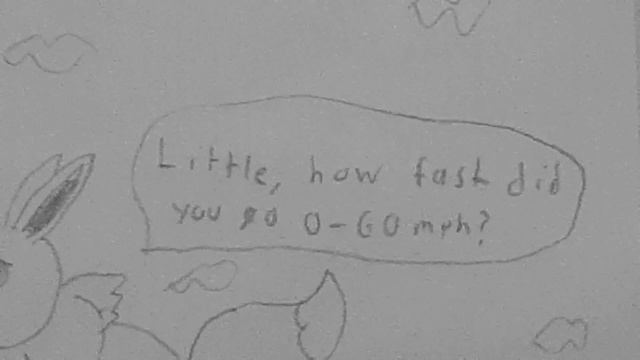 Little, how fast did
you go 0-60 mph?